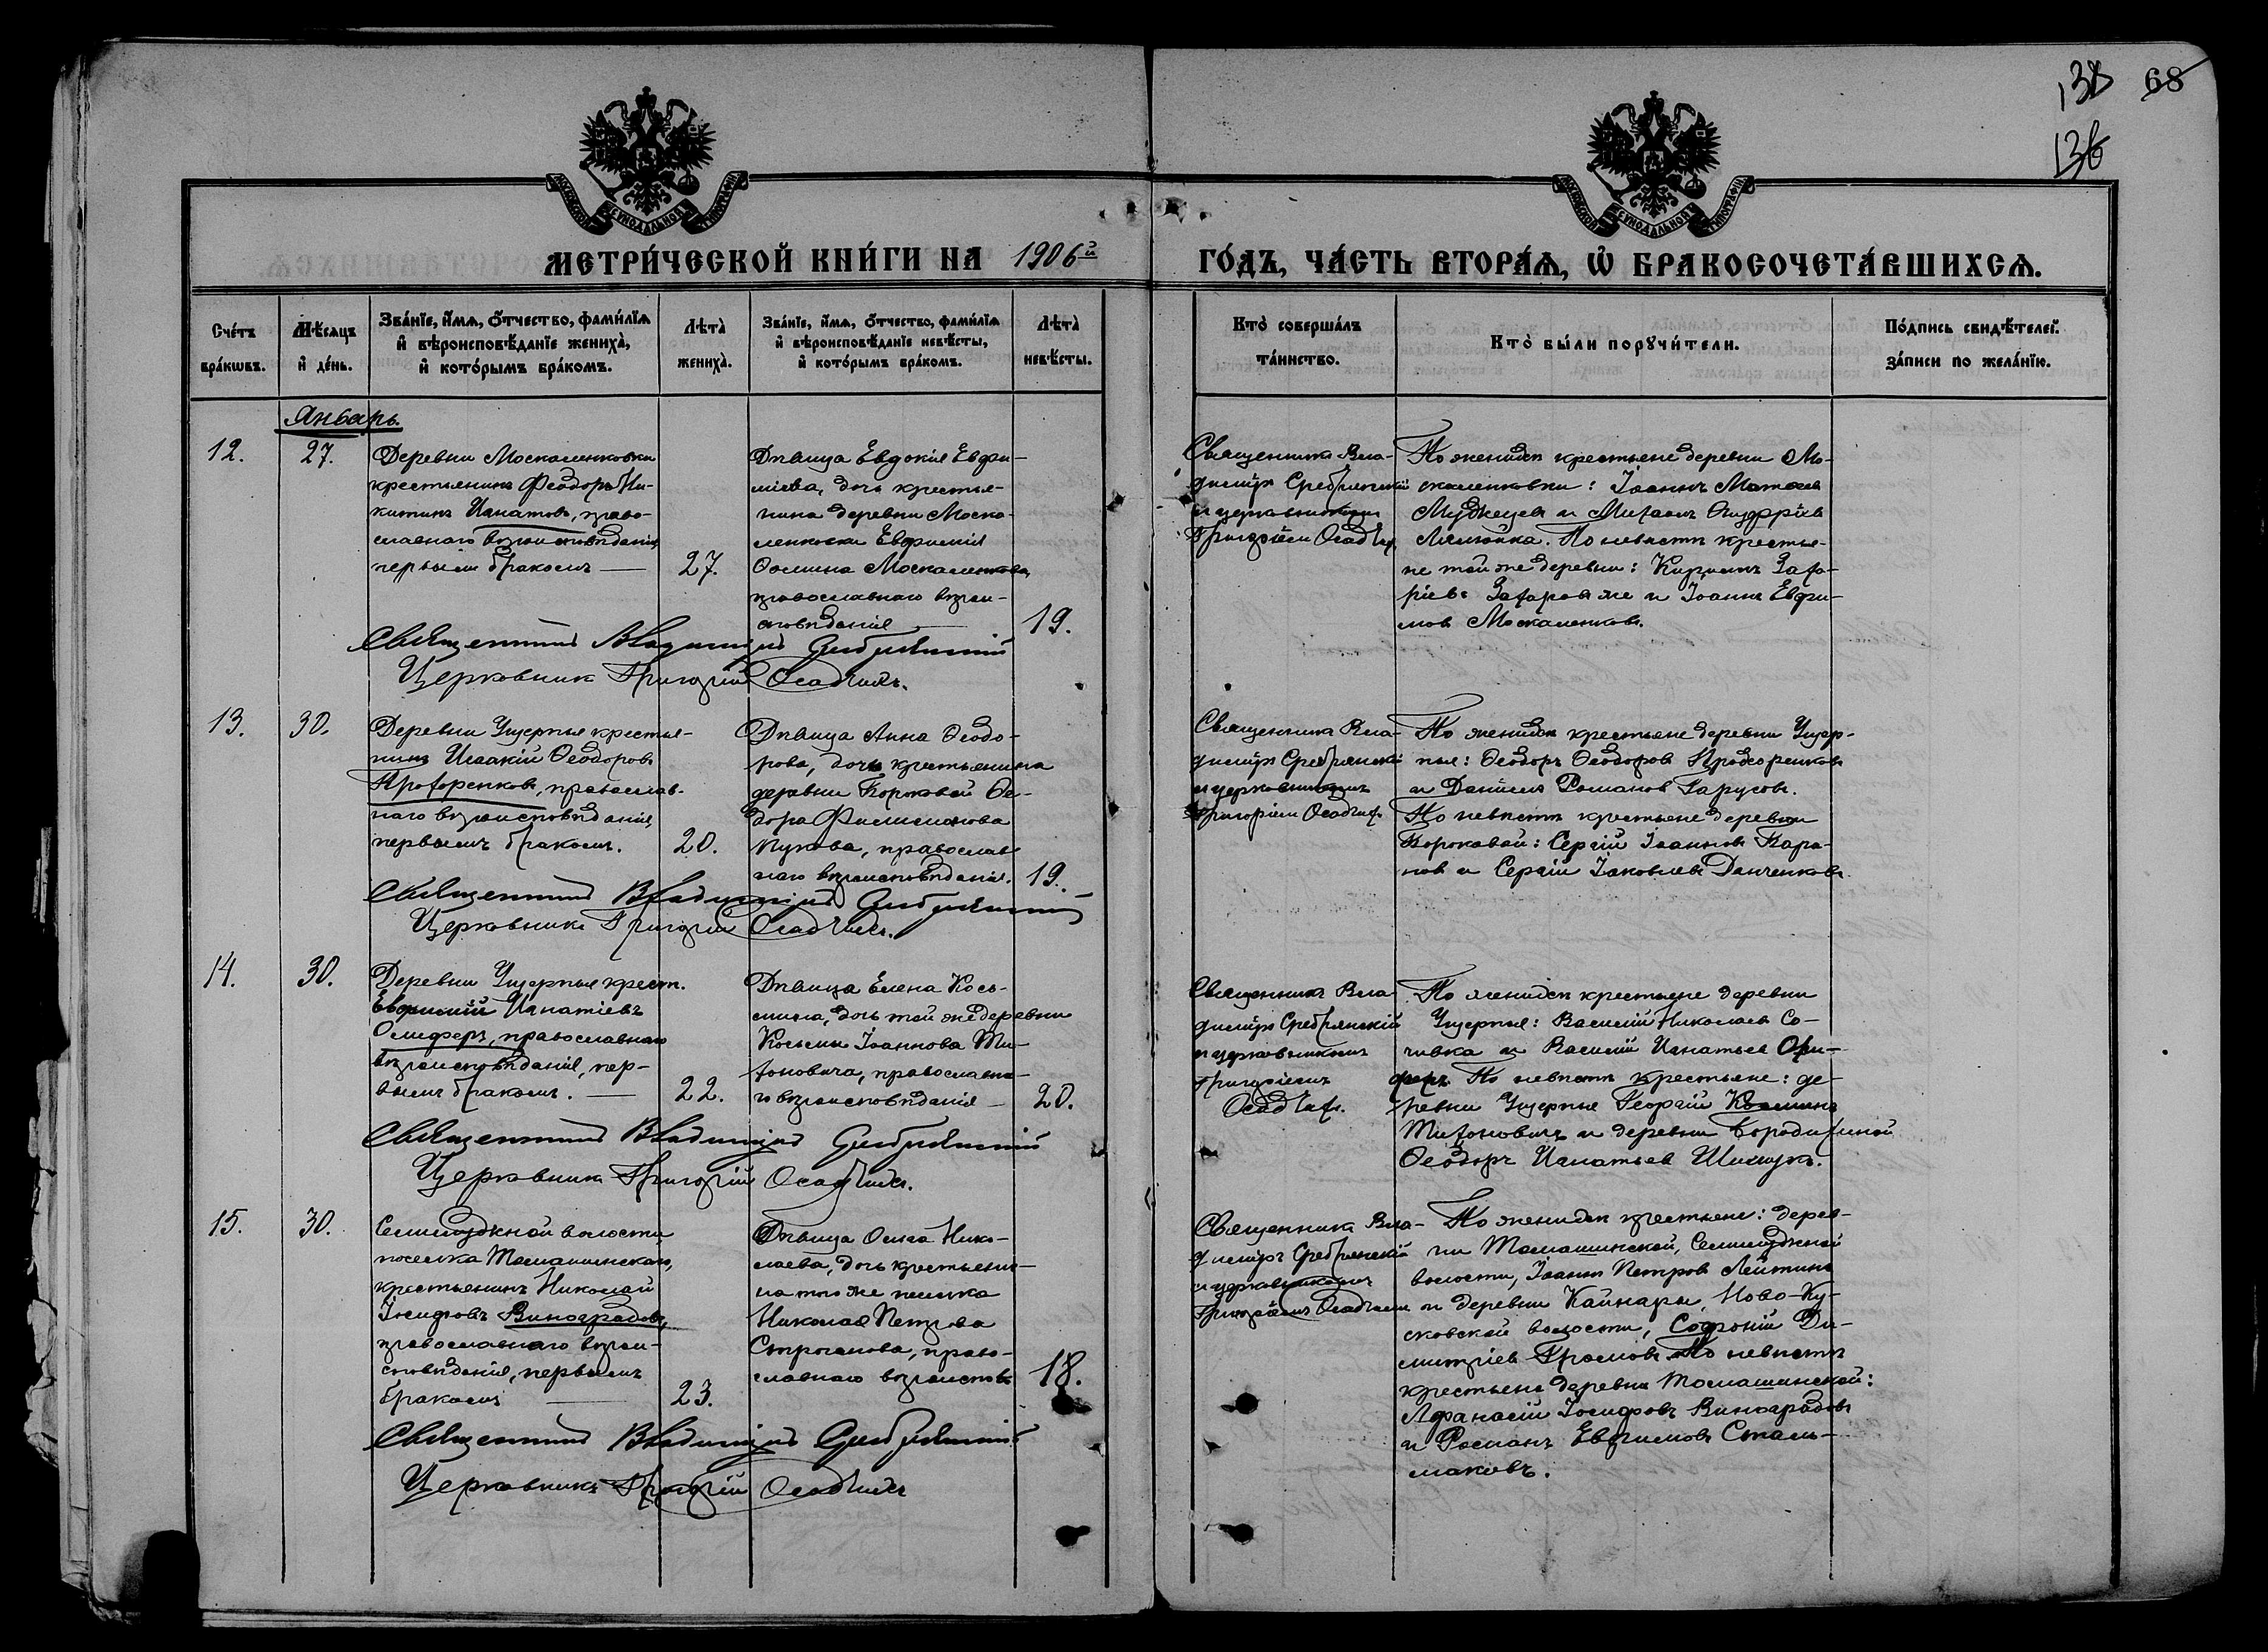 138 68
136
МОСКОВСКОЙ СѴНОДАЛЬНОЙ ТИПОГРАФІИ
МОСКОВСКОЙ СѴНОДАЛЬНОЙ ТИПОГРАФІИ
МЕТРИ́ЧЕСКОЙ КНИ́ГИ НА 1906й
ГО́ДЪ, ЧА́СТЬ ВТОРА́Ѧ, Ѽ БРАКОСОЧЕТА́ВШИХСѦ.
Сче́тъ
бра́кωвъ.
Мѣ́сяцъ
и҆ де́нь.
Зва́нїе, и҆́мѧ, о҆́тчество, фами́лїѧ
и҆ вѣроисповѣ́данїе жениха̀,
и҆ кото́рымъ бра́комъ.
Лѣта̀
жениха̀.
Зва́нїе, и҆́мѧ, о҆́тчество, фами́лїѧ
и҆ вѣроисповѣ́данїе невѣ́сты,
и҆ кото́рымъ бра́комъ.
Лѣта̀
невѣ́сты.
Кто̀ соверша́лъ
та́инство.
Кто̀ бы́ли порꙋчи́тели.
По́дпись свидѣ́телей
за́писи по жела́нїю.
Январь.
12.
27.
Деревни Москаленковки
крестьянинъ Феодоръ Ни-
китинъ Игнатовъ, право-
славнаго вѣроисповѣданія,
первымъ бракомъ —
27.
Дѣвица Евдокія Евфи-
міева, дочь крестья-
нина деревни Моска-
ленковки Евфимія
Ѳомина Москаленкова,
православнаго вѣрои-
сповѣданія —
19.
Священникъ Вла-
диміръ Сребрянскій
и церковникъ
Григорій Осадчій
По женихѣ крестьяне деревни Мо-
скаленковки: Іоаннъ Матѳеев
и Михаилъ Онуфріев
По невѣстѣ крестья-
не той же деревни: Захаровъ же и Іоаннъ Евфи-
мов Москаленковъ.
Священникъ Владиміръ Сребрянскій
Церковникъ Григорій Осадчій.
13.
30.
Деревни Ущерпья крестья-
нинъ Исаакій Ѳеодоровъ
Прохоренковъ, православ-
наго вѣроисповѣданія,
первымъ бракомъ.
20.
Дѣвица Анна Ѳеодо-
рова, дочь крестьянина
деревни Бороковой Ѳе-
дора Филимонова
православ-
наго вѣроисповѣданія.
19.
Священникъ Вла-
диміръ Сребрянскій
и церковникъ
Григорій Осадчій
По женихѣ крестьяне деревни Ущер-
пья: Ѳеодоръ Ѳеодоров Прохоренковъ
и Даніилъ Романов Гарусовъ.
По невѣстѣ крестьяне деревни
Бороковой: Сергій Іоаннов Бара-
нов и Сергій Іаковлев Данченковъ.
Священникъ Владиміръ Сребрянскій
Церковникъ Григорій Осадчій.
14.
30.
Деревни Ущерпья крест.
Евфимій Игнатіевъ
Олиферъ, православнаго
вѣроисповѣданія, пер-
вымъ бракомъ. —
22.
Дѣвица Елена Кось-
мина, дочь той же деревни
Косьмы Іоаннова Ти-
хоновича, православна-
го вѣроисповѣданія —
20.
Священникъ Вла-
диміръ Сребрянскій
и церковникъ
Григорій
Осадчій.
По женихѣ крестьяне деревни
Ущерпья: Василій Николаев Со-
чивка и Василій Игнатьев Оли-
феръ. По невѣстѣ крестьяне: де-
ревни Ущерпья Георгій
Тихоновичъ и деревни Бородихиной
Ѳеодоръ Игнатьев Шишукъ.
Священникъ Владиміръ Сребрянскій
Церковникъ Григорій Осадчій.
15.
30.
Семилужной волости
поселка Томашинскаго,
крестьянинъ Николай
Іосифовъ Виноградовъ,
православнаго вѣрои-
сповѣданія, первымъ
бракомъ —
23.
Дѣвица Ольга Нико-
лаева, дочь крестьяни-
на того же поселка
Николая Петрова
Строганова, право-
славнаго вѣроиспов.
18.
Священникъ Вла-
диміръ Сребрянскій
и церковникъ
Григорій Осадчій
По женихѣ крестьяне: дерев-
ни Томашинской, Семилужной
волости, Іоаннъ Петров
и деревни Кайнары, Ново-Ку-
сковской волости, Софроній Ди-
митріев Громовъ. По невѣстѣ
крестьяне деревни Томашинской:
Аѳанасій Іосифовъ Виноградовъ
и Романъ Евфимовъ
Священникъ Владиміръ Сребрянскій
Церковникъ Григорій Осадчій